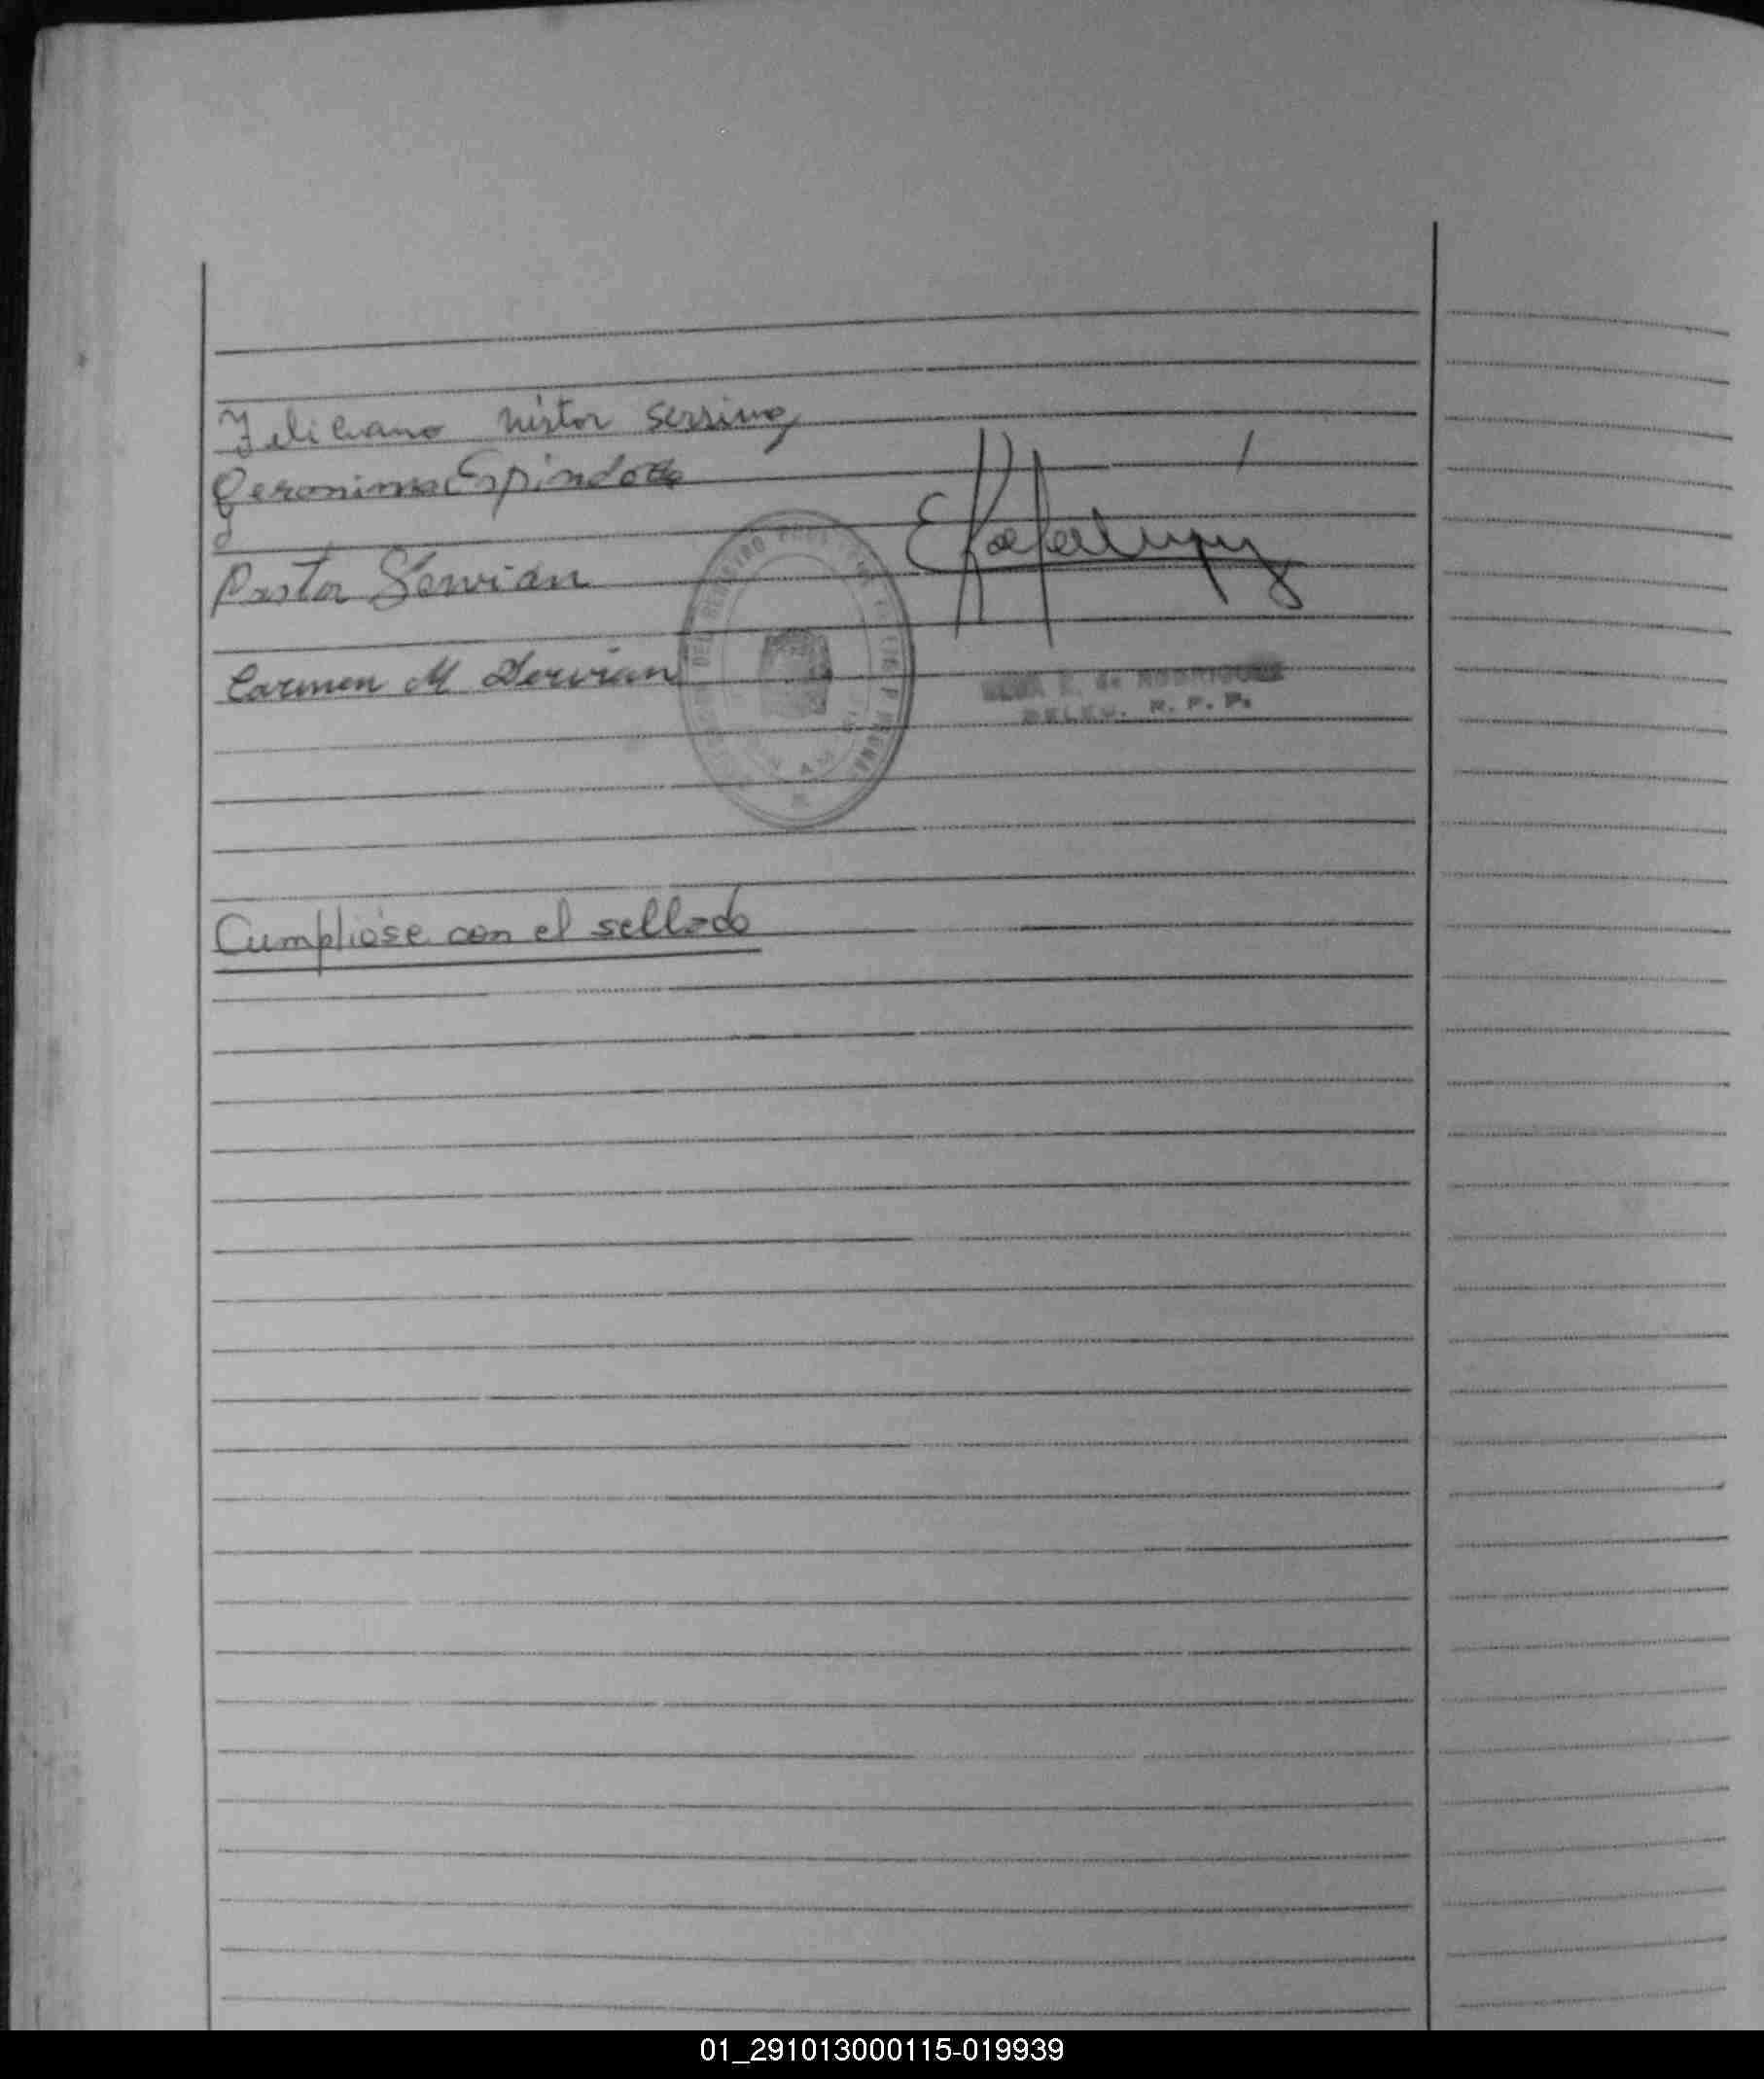 Feliciano nistor serring
Geronima Espindola
Pastor Servian
Carmen M Servian
DEL REGISTRO
de RODRIGUEZ
DELEG. R. P. P.
Cumplióse con el sellado
01_291013000115-019939